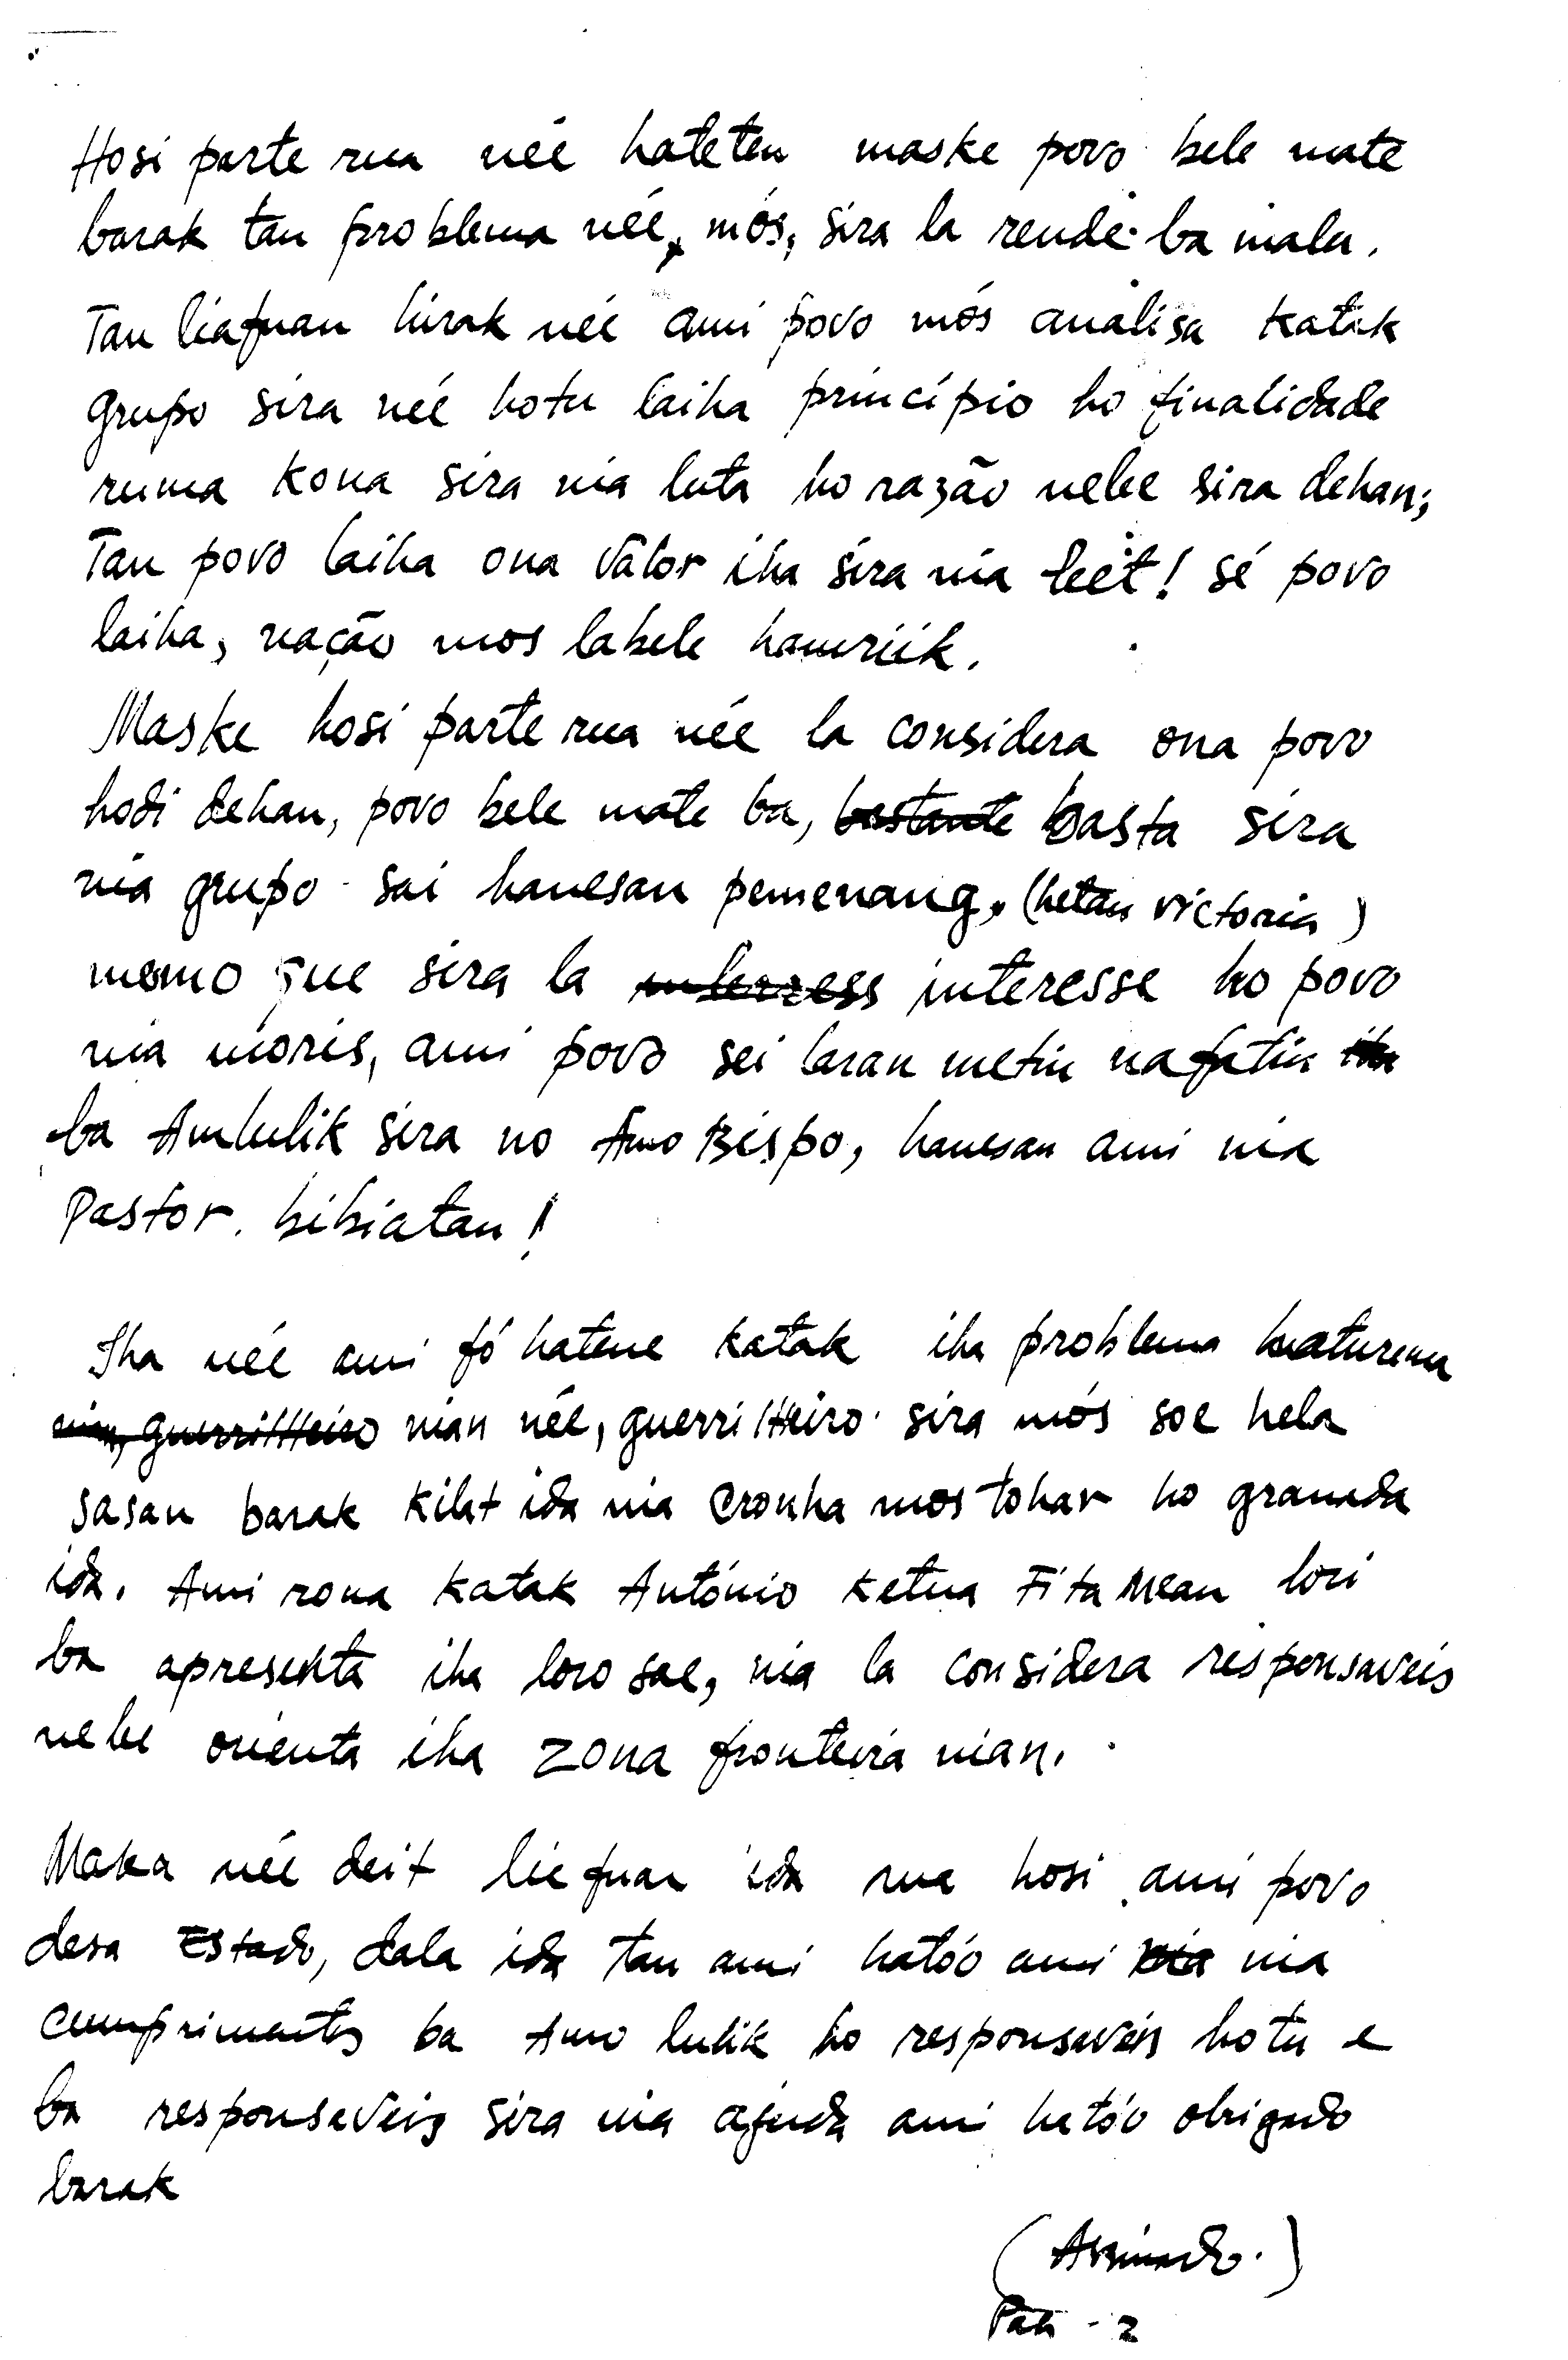 Hosi parte rua neé hateten maske povo bele mate
barak tan problema neé, mós, sira la rende ba malu.
Tan liafuan hirak neé ami povo mós analisa katak
grupo sira neé hotu laiha princípio ho finalidade
ruma kona sira nia luta ho razão nebe sira dehan;
Tan povo laiha ona válor iha sira nia leet! sé povo
laiha, nação mos labele hamriik.
Maske hosi parte rua neé la considera ona povo
hodi dehan, povo bele mate ba, bastante basta sira
nia grupo sai hanesan pemenang, (hetan victoria)
momo que sira la interesse ho povo
nia moris, ami povo sei laran metin nafatin iha
ba Amlulik sira no Amo Bispo, hanesan ami nia
Pastor bibiatan!
Iha neé ami fó hatene katak iha problema
nian, guerrilheiro nian neé, guerrilheiro sira mós soe hela
sasan barak kilat ida nia cronha mos tohar ho granada
ida. Ami rona katak António ketua Fita Mean lori
ba apresenta iha loro sae, nia la considera responsaveis
nebe orienta iha zona fronteira nian.
Maka neé deit liefuan ida rua hosi ami povo
desa Estado, dala ida tan ami hatóo ami nia nia
cumprimentos ba Amo lulik ho responsavéis hotu e
ba responsaveis sira nia ajuda ami hatóo obrigado
barak
(Assinado.)
- 2